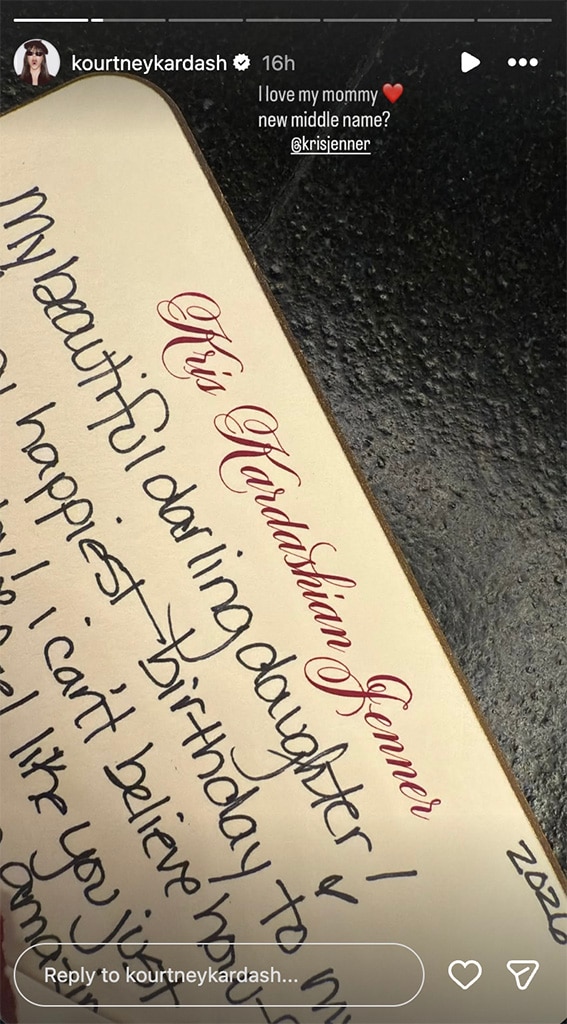 kourtneykardash 16h
I love my mommy ❤️
new middle name?
@krisjenner
Kris Kardashian Jenner
2026
My beautiful darling daughter!
happiest birthday to my
i can't believe how
like you just
Reply to kourtneykardash...